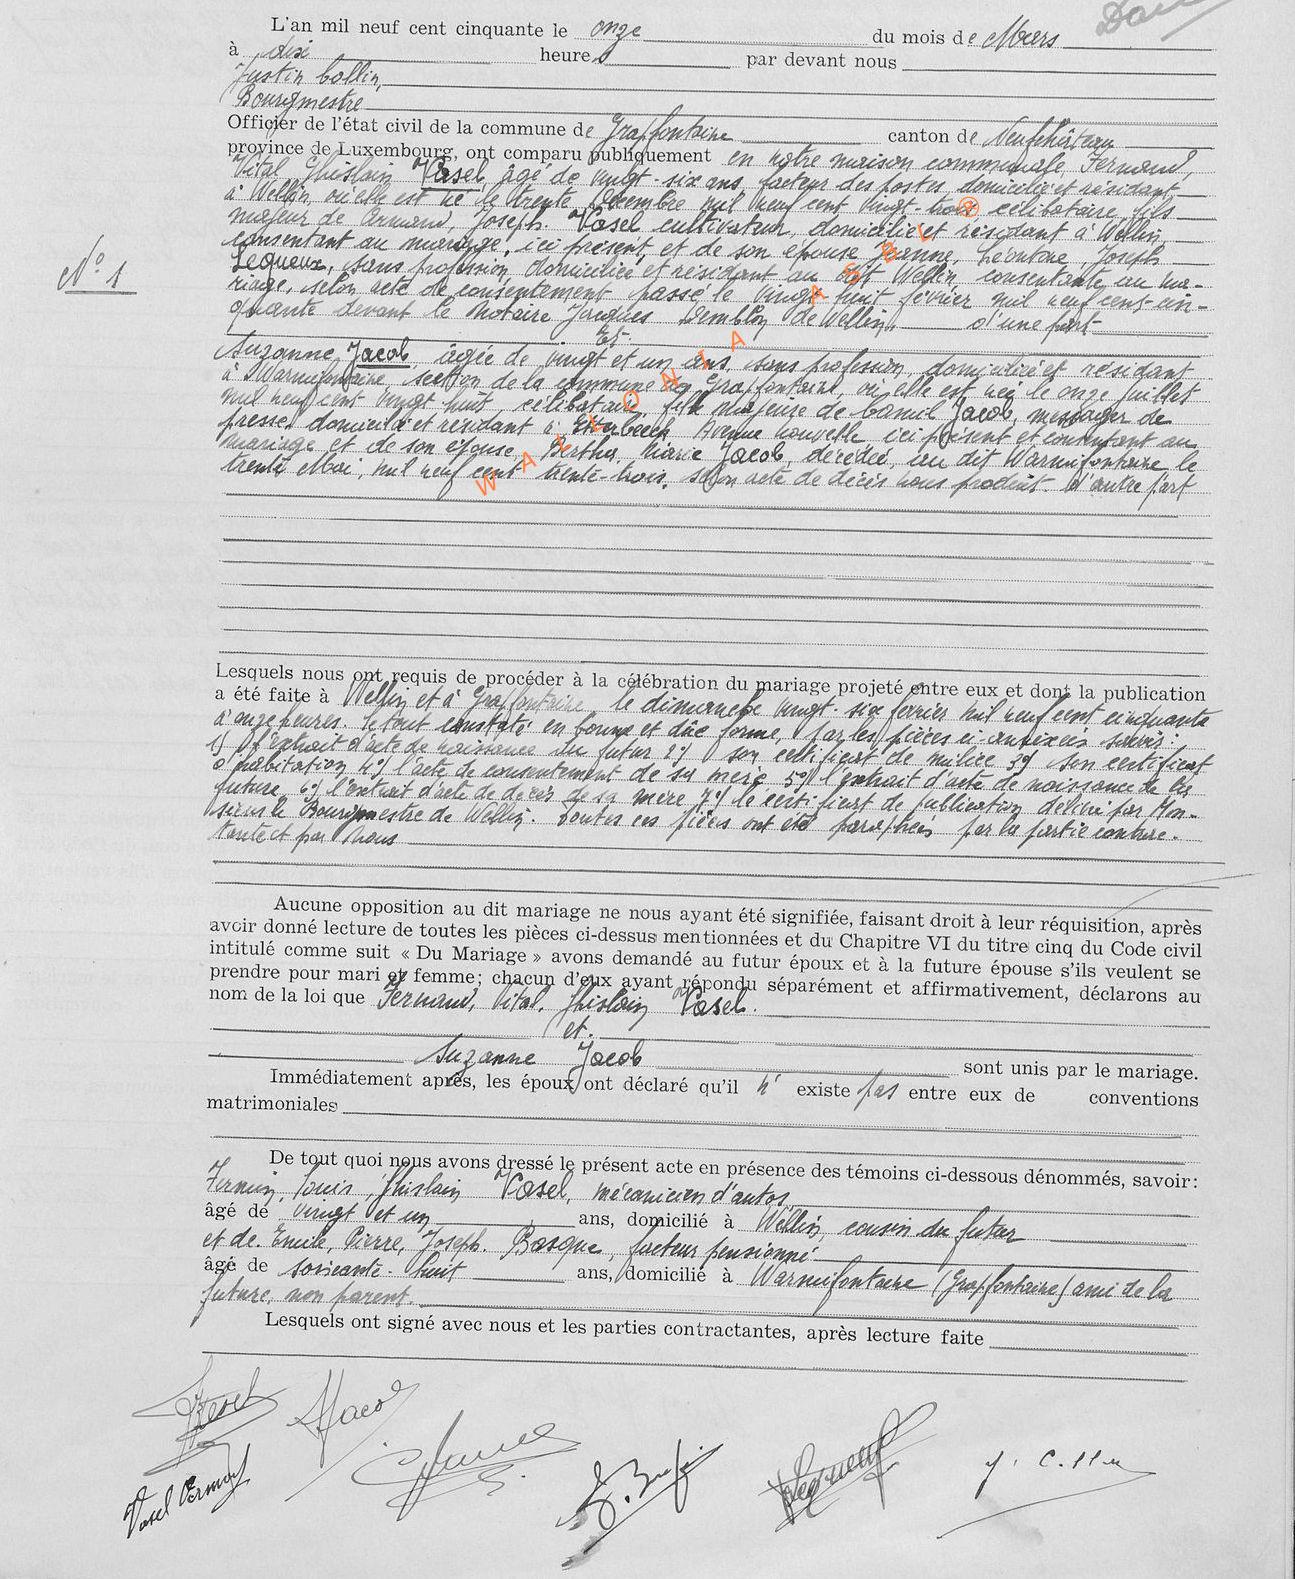 L'an mil neuf cent cinquante le onze du mois de Mars
à dix heures par devant nous
Justin Collin,
Bourgmestre
Officier de l'état civil de la commune de Grapfontaine canton de Neufchâteau
province de Luxembourg, ont comparu publiquement en notre maison communale, Fernand,
Vital Ghislain Vasel, âgé de vingt-six ans, facteur des postes, domicilié et résidant
à Wellin, où elle est né le trente Décembre mil neuf cent vingt-trois célibataire, fils
majeur de Armand, Joseph Vasel cultivateur, domicilié et résidant à Wellin
consentant au mariage, ici présent, et de son épouse Jeanne, Léontine, Joseph
Lequeux, sans profession domiciliée et résidant au dit Wellin consentante au ma-
riage, selon acte de consentement passé le vingt huit février mil neuf cent cin-
quante devant le Notaire Jacques Demblon de Wellin, d'une part
Et
Suzanne Jacob, âgée de vingt et un ans, sans profession, domiciliée et résidant
à Warmifontaine, section de la commune de Grapfontaine, où elle est née le onze juillet
mil neuf cent vingt huit, célibataire, fille majeure de Camil Jacob, messager de
presse, domicilié et résidant à Etterbeek Avenue nouvelle ici présent et consentant au
mariage et de son épouse, Bertha, Marie Jacob, décédée, au dit Warmifontaine le
trente Mai, mil neuf cent trente-trois, selon acte de décès nous produit. d'autre part
N° 1
WALLONIA ASBL ®
Lesquels nous ont requis de procéder à la célébration du mariage projeté entre eux et dont la publication
a été faite à Wellin et à Grapfontaine le dimanche vingt-six février mil neuf cent cinquante
à onze heures. Le tout constaté en bonne et dûe forme, par les pièces ci-annexées savoir:
1) l'extrait d'acte de naissance du futur 2°) son certificat de milice 3°) son certificat
d'habitation 4°) l'acte de consentement de sa mère 5°) l'extrait d'acte de naissance de la
future 6°) l'extrait d'acte de décès de sa mère 7°) le certificat de publication délivré par Mon-
sieur le Bourgmestre de Wellin. Toutes ces pièces ont été paraphées par la partie contrac-
tante et par nous
Aucune opposition au dit mariage ne nous ayant été signifiée, faisant droit à leur réquisition, après
avoir donné lecture de toutes les pièces ci-dessus mentionnées et du Chapitre VI du titre cinq du Code civil
intitulé comme suit « Du Mariage » avons demandé au futur époux et à la future épouse s'ils veulent se
prendre pour mari et femme; chacun d'eux ayant répondu séparément et affirmativement, déclarons au
nom de la loi que Fernand, Vital, Ghislain Vasel.
et
Suzanne Jacob sont unis par le mariage.
Immédiatement après, les époux ont déclaré qu'il n' existe pas entre eux de conventions
matrimoniales
De tout quoi nous avons dressé le présent acte en présence des témoins ci-dessous dénommés, savoir:
Firmin, Louis, Ghislain Vasel, mécanicien d'autos,
âgé de vingt et un ans, domicilié à Wellin, cousin du futur
et de Emile, Pierre, Joseph Basque, facteur pensionné
âgé de soixante-huit ans, domicilié à Warmifontaine (Grapfontaine) ami de la
future, non parent.
Lesquels ont signé avec nous et les parties contractantes, après lecture faite
Vasel SJacob
Vasel Firmin Lequeux J. Collin